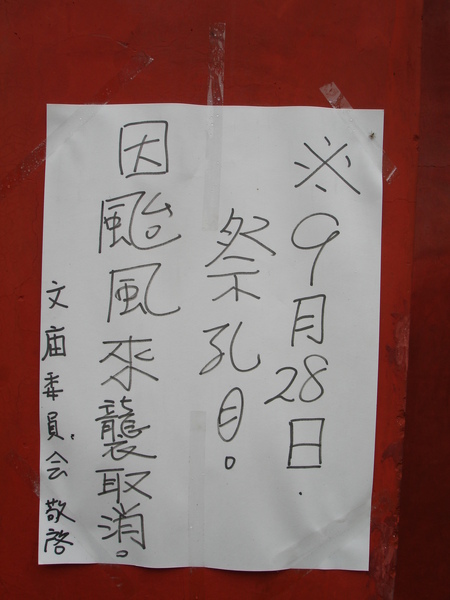 ※9月28日.
祭孔日。
因颱風來襲取消。
文庙委員会 敬啓